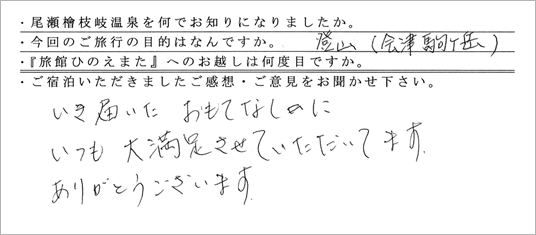 ・尾瀬檜枝岐温泉を何でお知りになりましたか。
・今回のご旅行の目的はなんですか。 登山(会津駒ヶ岳)
・『旅館ひのえまた』へのお越しは何度目ですか。
・ご宿泊いただきましたご感想・ご意見をお聞かせ下さい。
いき届いた おもてなしの心に
いつも 大満足させていただいてます。
ありがとうございます。